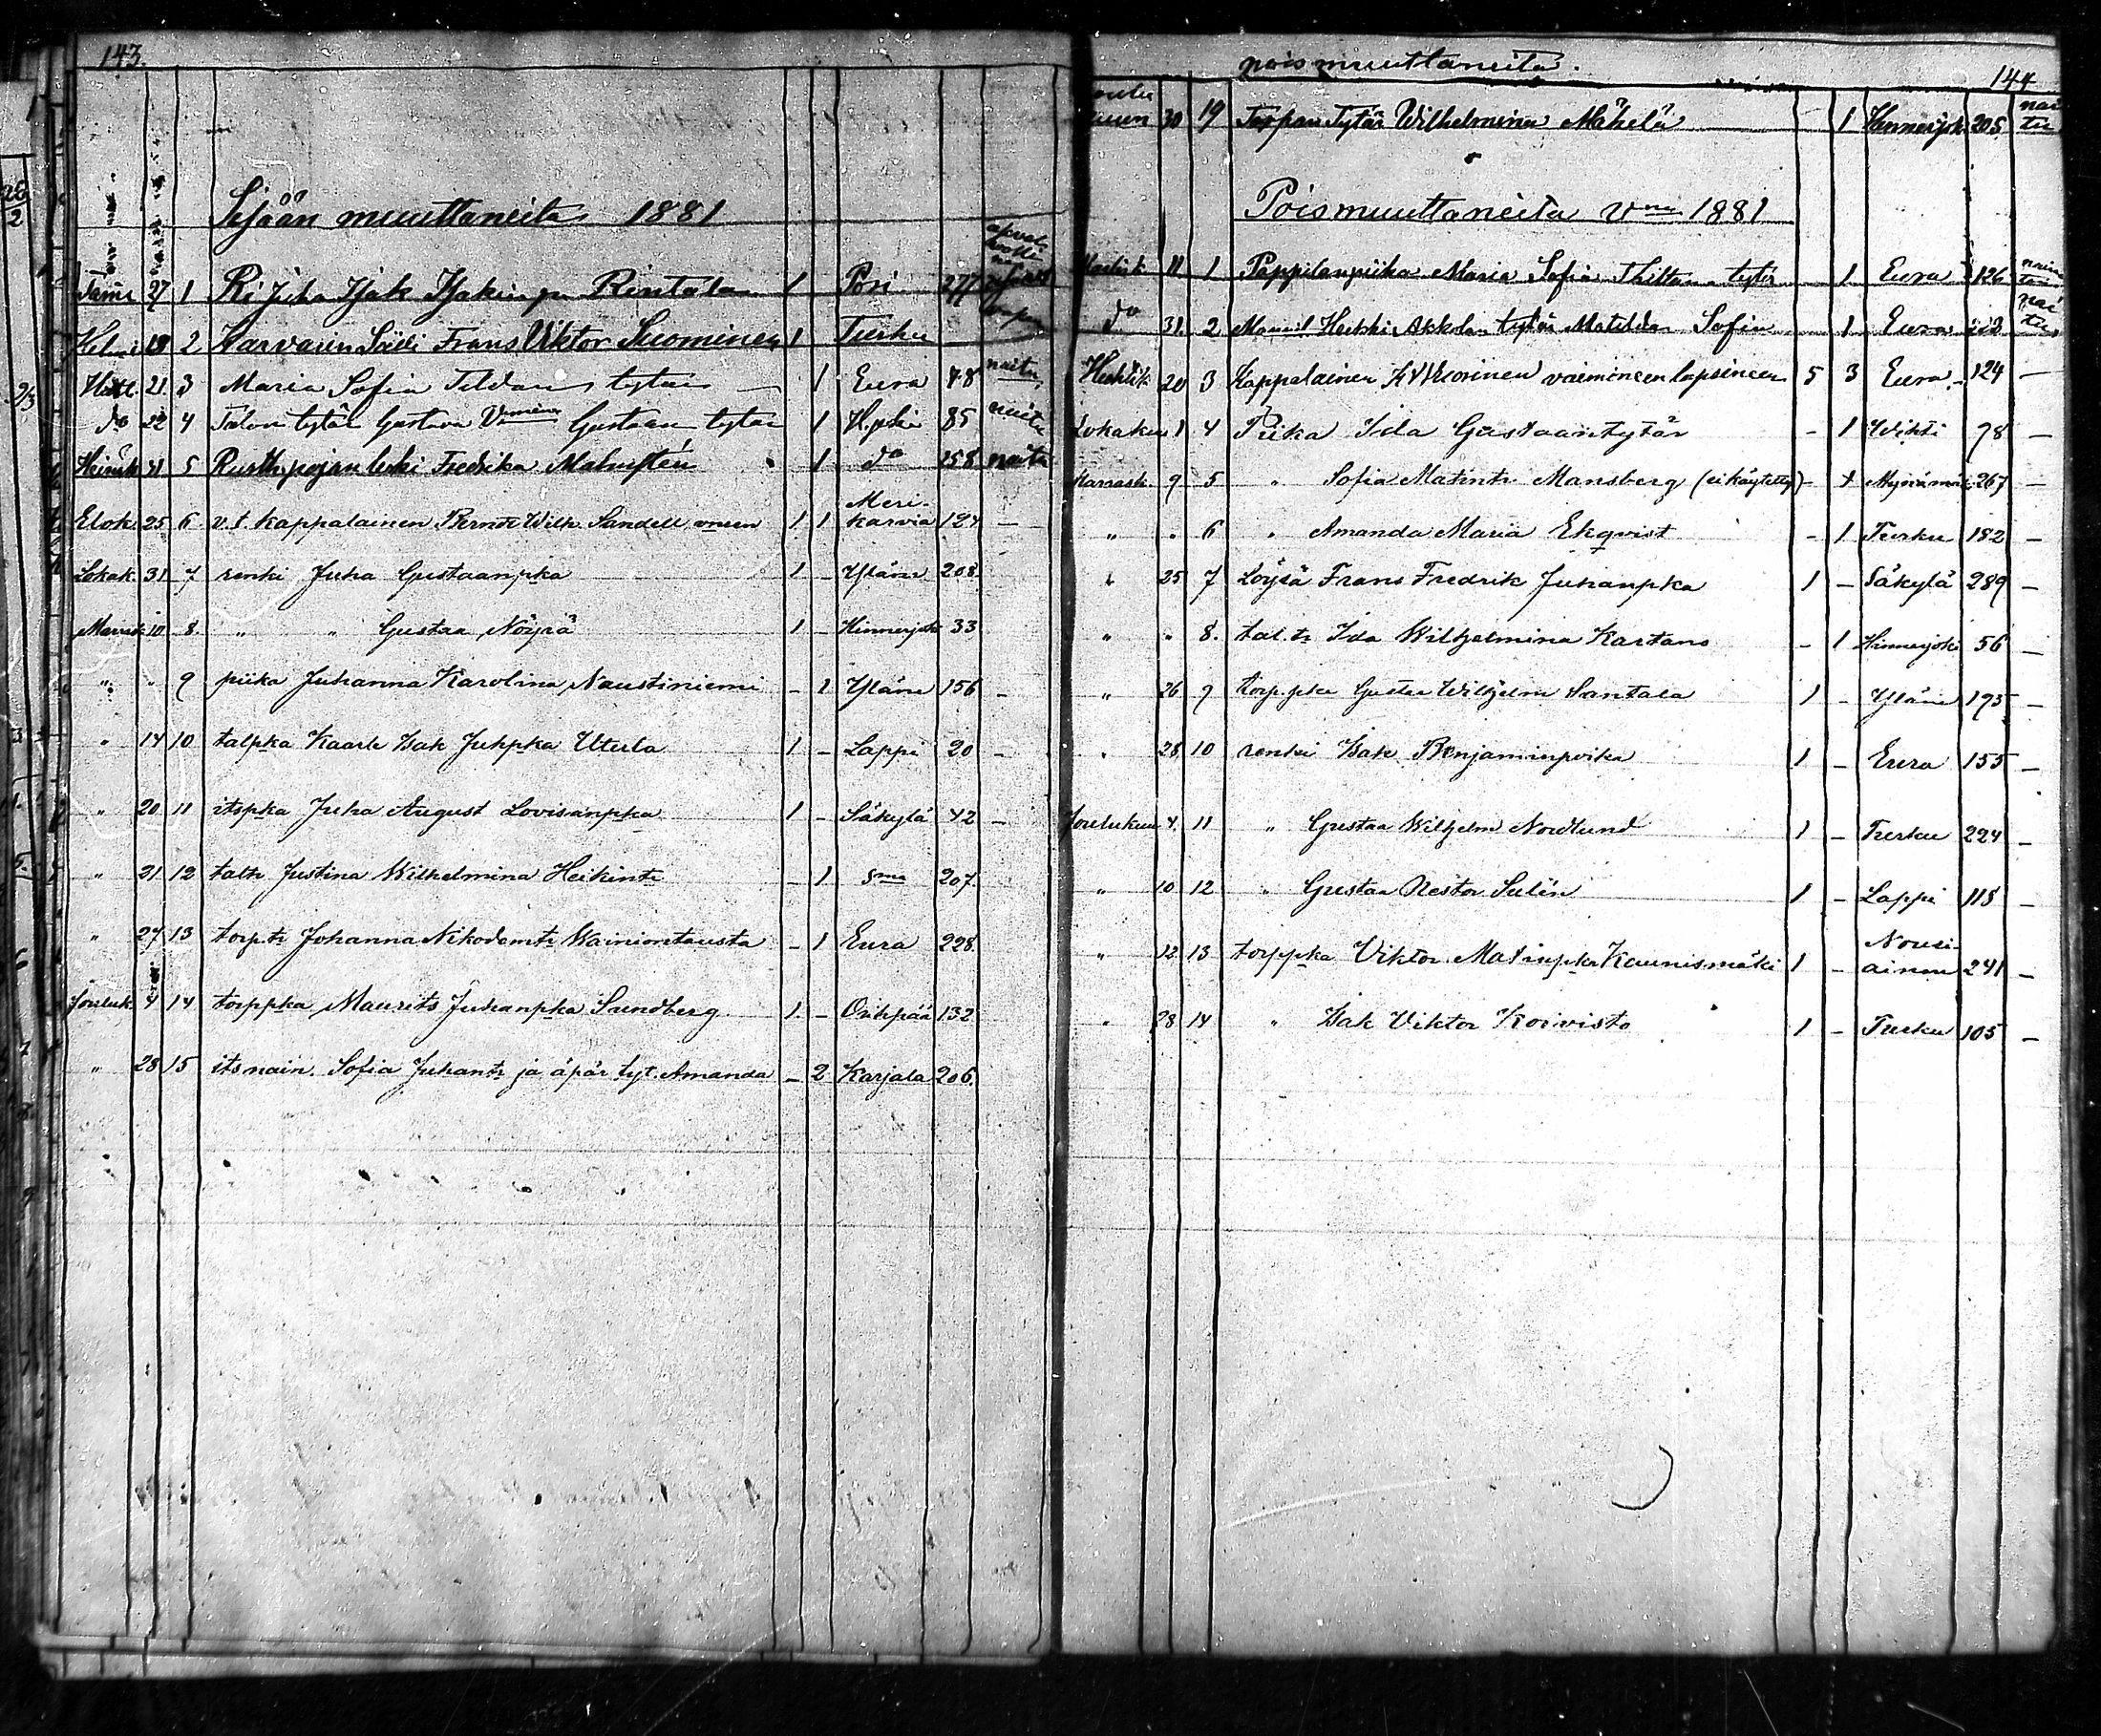 143.
Sisään muuttaneita 1881
27 1 Ri Juha Isak Isakinp. Rintala 1 Pori 277
Helmi 18 2 Karvarin Sälli Frans Viktor Suominen 1 Turku
21 3 Maria Sofia tytär 1 Eura 78 naitu
do 22 4 Talon tytär Gustava Gustaan tytär 1 H.joki 85 naitu
Heinäk 5 Rusth. pojan leski Fredrika 1 do 158 naitu
Elok. 25 6 v.t. kappalainen Bernt Wilh. Sandell 1 1 Merikarvia 124 —
Lokak. 31 7 renki Juha Gustaanpka 1 – Yläne 208
Marrask. 10 8. " " Gustaa Nöyrä 1 – Hinnerjoki 33
" " 9 piika Juhanna Karolina Naustiniemi – 1 Yläne 156 –
" 14 10 talpka Kaarle Isak Juhpka Uterla 1 – Lappi 20 –
" 20 11 itspka Juha August Lovisanpka 1 – Säkylä 42 –
" 21 12 taltr Justina Wilhelmina Heikintr – 1 sma 207.
" 27 13 torp.tr Johanna Nikodemtr Wainiontausta – 1 Eura 228
Jouluk. 4 14 torppka Maurits Juhanpka Sundberg 1 – Orihpää 132
" 28 15 itsnain. Sofia Juhantr ja äpär. tyt. Amanda – 2 Karjala 206.
pois muuttaneita.
144
30 19 Torpan Tytär Wilhelmina Mäkelä 1 Hinnerjok. 205 naitu
Poismuuttaneita Vna 1881
11 1 Pappilanpiika Maria Sofia tytär 1 Eura 126
do 31. 2 Heikki tytär Matilda Sofia 1 Eura naitu
Huhtik 20 3 Kappalainen vaimoineen lapsineen 5 3 Eura 124 —
Lokakuu 1 4 Piika Ida Gustaantytär – 1 Wihti 78 —
Marrask. 9 5 " Sofia Matintr Mansberg (ei käytetty) – 1 Mynämäki 267 —
" " 6 " Amanda Maria Ekqvist – 1 Turku 182 —
" 25 7 Loysä Frans Fredrik Juhanpka 1 – Säkylä 289 —
" " 8. tal.tr Ida Wilhelmina Kartano – 1 Hinnerjoki 56 —
" 26 9 torp.pka Gustaa Wilhelm Santala 1 – Yläne 195 —
" 28 10 renki Isak Benjaminpoika 1 – Eura 155 —
Joulukuu 4. 11 " Gustaa Wilhelm Nordlund 1 – Turku 224 —
" 10 12 " Gustaa Nestor Sulin 1 – Lappi 118 —
" 12 13 torppka Viktor Matinpka Kaunismäki 1 – Nousiainen 241 —
" 28 14 " Isak Viktor Koivisto 1 – Turku 105 —